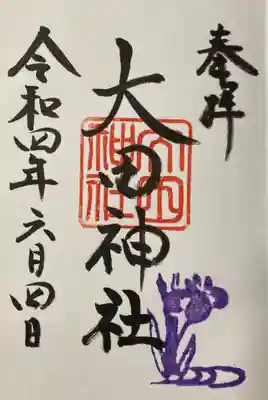 奉拝
大田神社
大田神社
令和四年六月四日